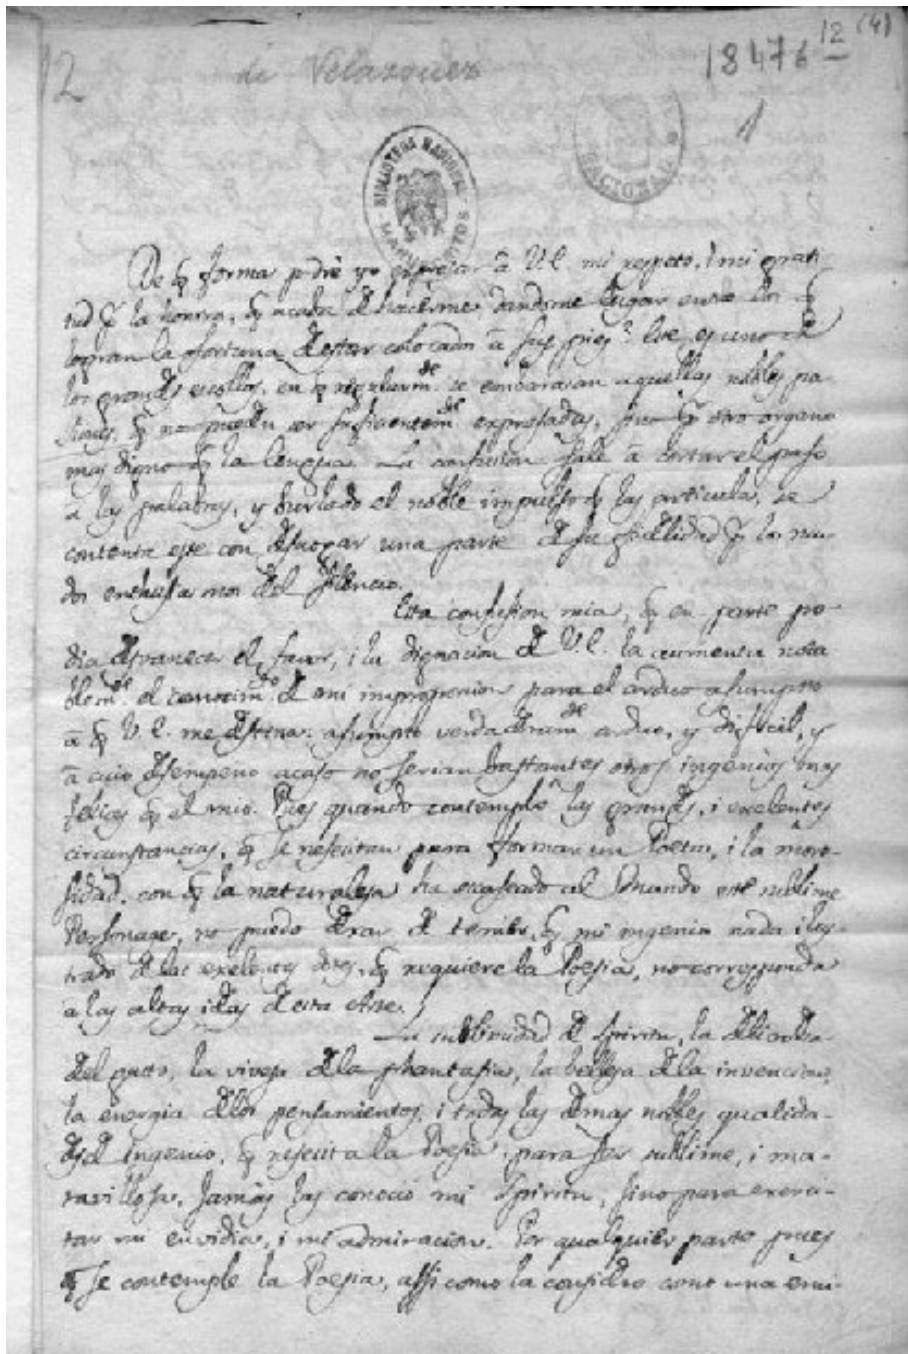 12 (4)
12 de Velazquez 18476
1
BIBLIOTECA NACIONAL
MANUSCRITOS
NACIONAL
De q̃ forma podrè yo expresar à V.E. mi respeto, i mi grati-
tud p̃ la honrra, q̃ acaba de hacerme dandome lugar entre los q̃
logran la fortuna de estar colocados à sus pies? Este es uno de
los grandes escollos, en q̃ regularmte. se embarazan aquellas nobles pa-
siones, q̃ no pueden ser suficientemte. expresadas, sino p̃ otro organo
mas digno q̃ la lengua. La confusion sale à cortar el paso
a las palabras, y burlado el noble impulso q̃ las articula, se
contenta este con desaogar una parte de su fidelidad p̃ los mu-
dos enthusiasmos del silencio.
Esta confusion mia, q̃ en parte po-
dia desvanecer el favor, i la dignacion de V.E. la aumenta nota
blemte. el conocimto. de mi improporcion para el arduo asumpto
à q̃ V.E. me destina: asumpto verdaderamte. arduo, y dificil, y
à cuio desempeño acaso no serian bastantes otros ingenios mas
felices q̃ el mio. Pues quando contemplo las grandes, i exelentes
circunstancias, q̃ se nesecitan para formar un Poeta, i la moro-
sidad, con q̃ la naturaleza ha escaseado al Mundo este sublime
Personage, no puedo dexar de temer, q̃ mi ingenio nada ilus-
trado de las exelentes dotes, q̃ requiere la Poesia, no corresponda
a las altas ideas de esta Arte.
La sublimidad de Spiritu, la delicadeza
del gusto, la viveza de la phantasia, la belleza de la invencion,
la energia de los pensamientos, i todas las demas nobles qualida-
des de ingenio, q̃ nesecita la Poesia, para ser sublime, i ma-
ravillosa, jamas las conoció mi Spiritu, sino para exerci-
tar mi envidia, i mi admiracion. Por qualquier parte pues
q̃ se contemple la Poesia, assi como la considero como una emi-